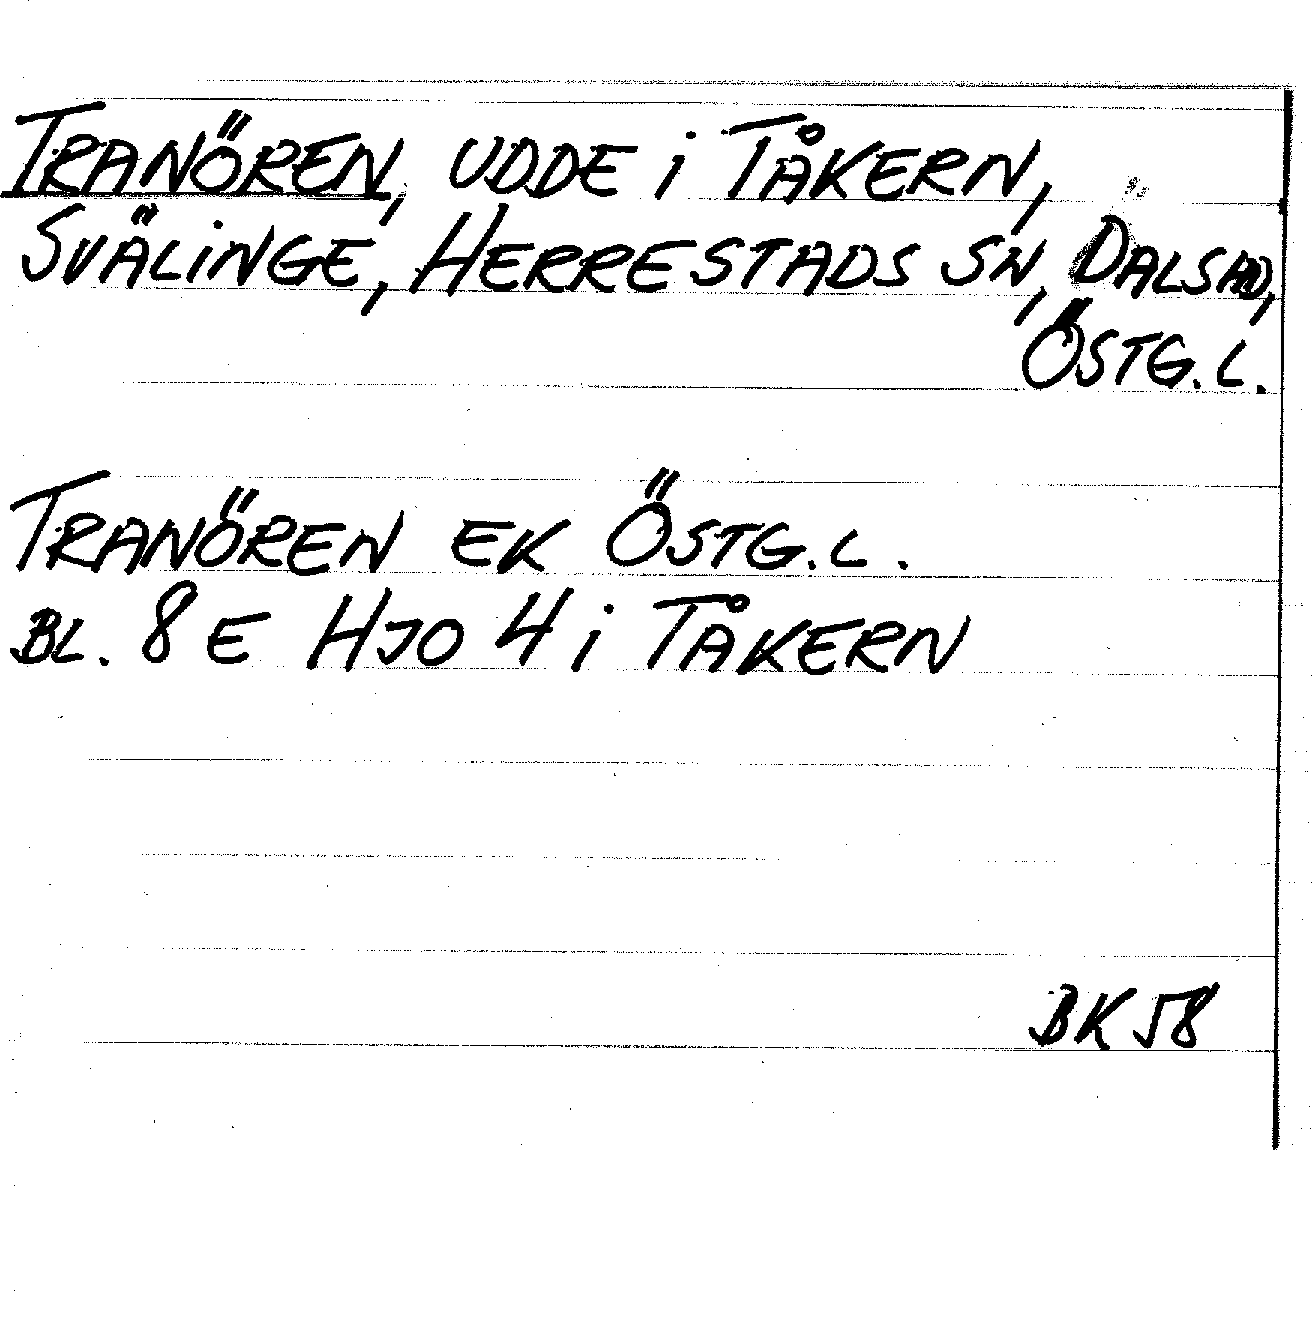 TRANÖREN, UDDE i TÅKERN,
SVÄLINGE, HERRESTADS SN, DALS HD,
ÖSTG.L.
TRANÖREN EK ÖSTG.L.
BL. 8 E HJO 4 i TÅKERN
BK 58